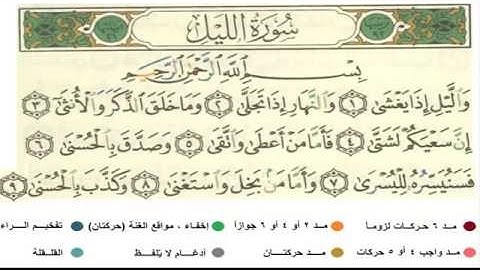 سُورَةُ اللَّيْلِ
بِسْمِ اللَّهِ الرَّحْمَٰنِ الرَّحِيمِ
وَالَّيْلِ إِذَا يَغْشَىٰ ١ وَالنَّهَارِ إِذَا تَجَلَّىٰ ٢ وَمَا خَلَقَ الذَّكَرَ وَالْأُنثَىٰ ٣
إِنَّ سَعْيَكُمْ لَشَتَّىٰ ٤ فَأَمَّا مَنْ أَعْطَىٰ وَاتَّقَىٰ ٥ وَصَدَّقَ بِالْحُسْنَىٰ ٦
فَسَنُيَسِّرُهُ لِلْيُسْرَىٰ ٧ وَأَمَّا مَنْ بَخِلَ وَاسْتَغْنَىٰ ٨ وَكَذَّبَ بِالْحُسْنَىٰ ٩
مد ٦ حركات لزوما مد ٢ أو ٤ أو ٦ جوازاً إخفاء ، مواقع الغنة (حركتان) تفخيم الراء
مد واجب ٤ أو ٥ حركات مد حركتان أدغام لا يُلفظ القلقلة